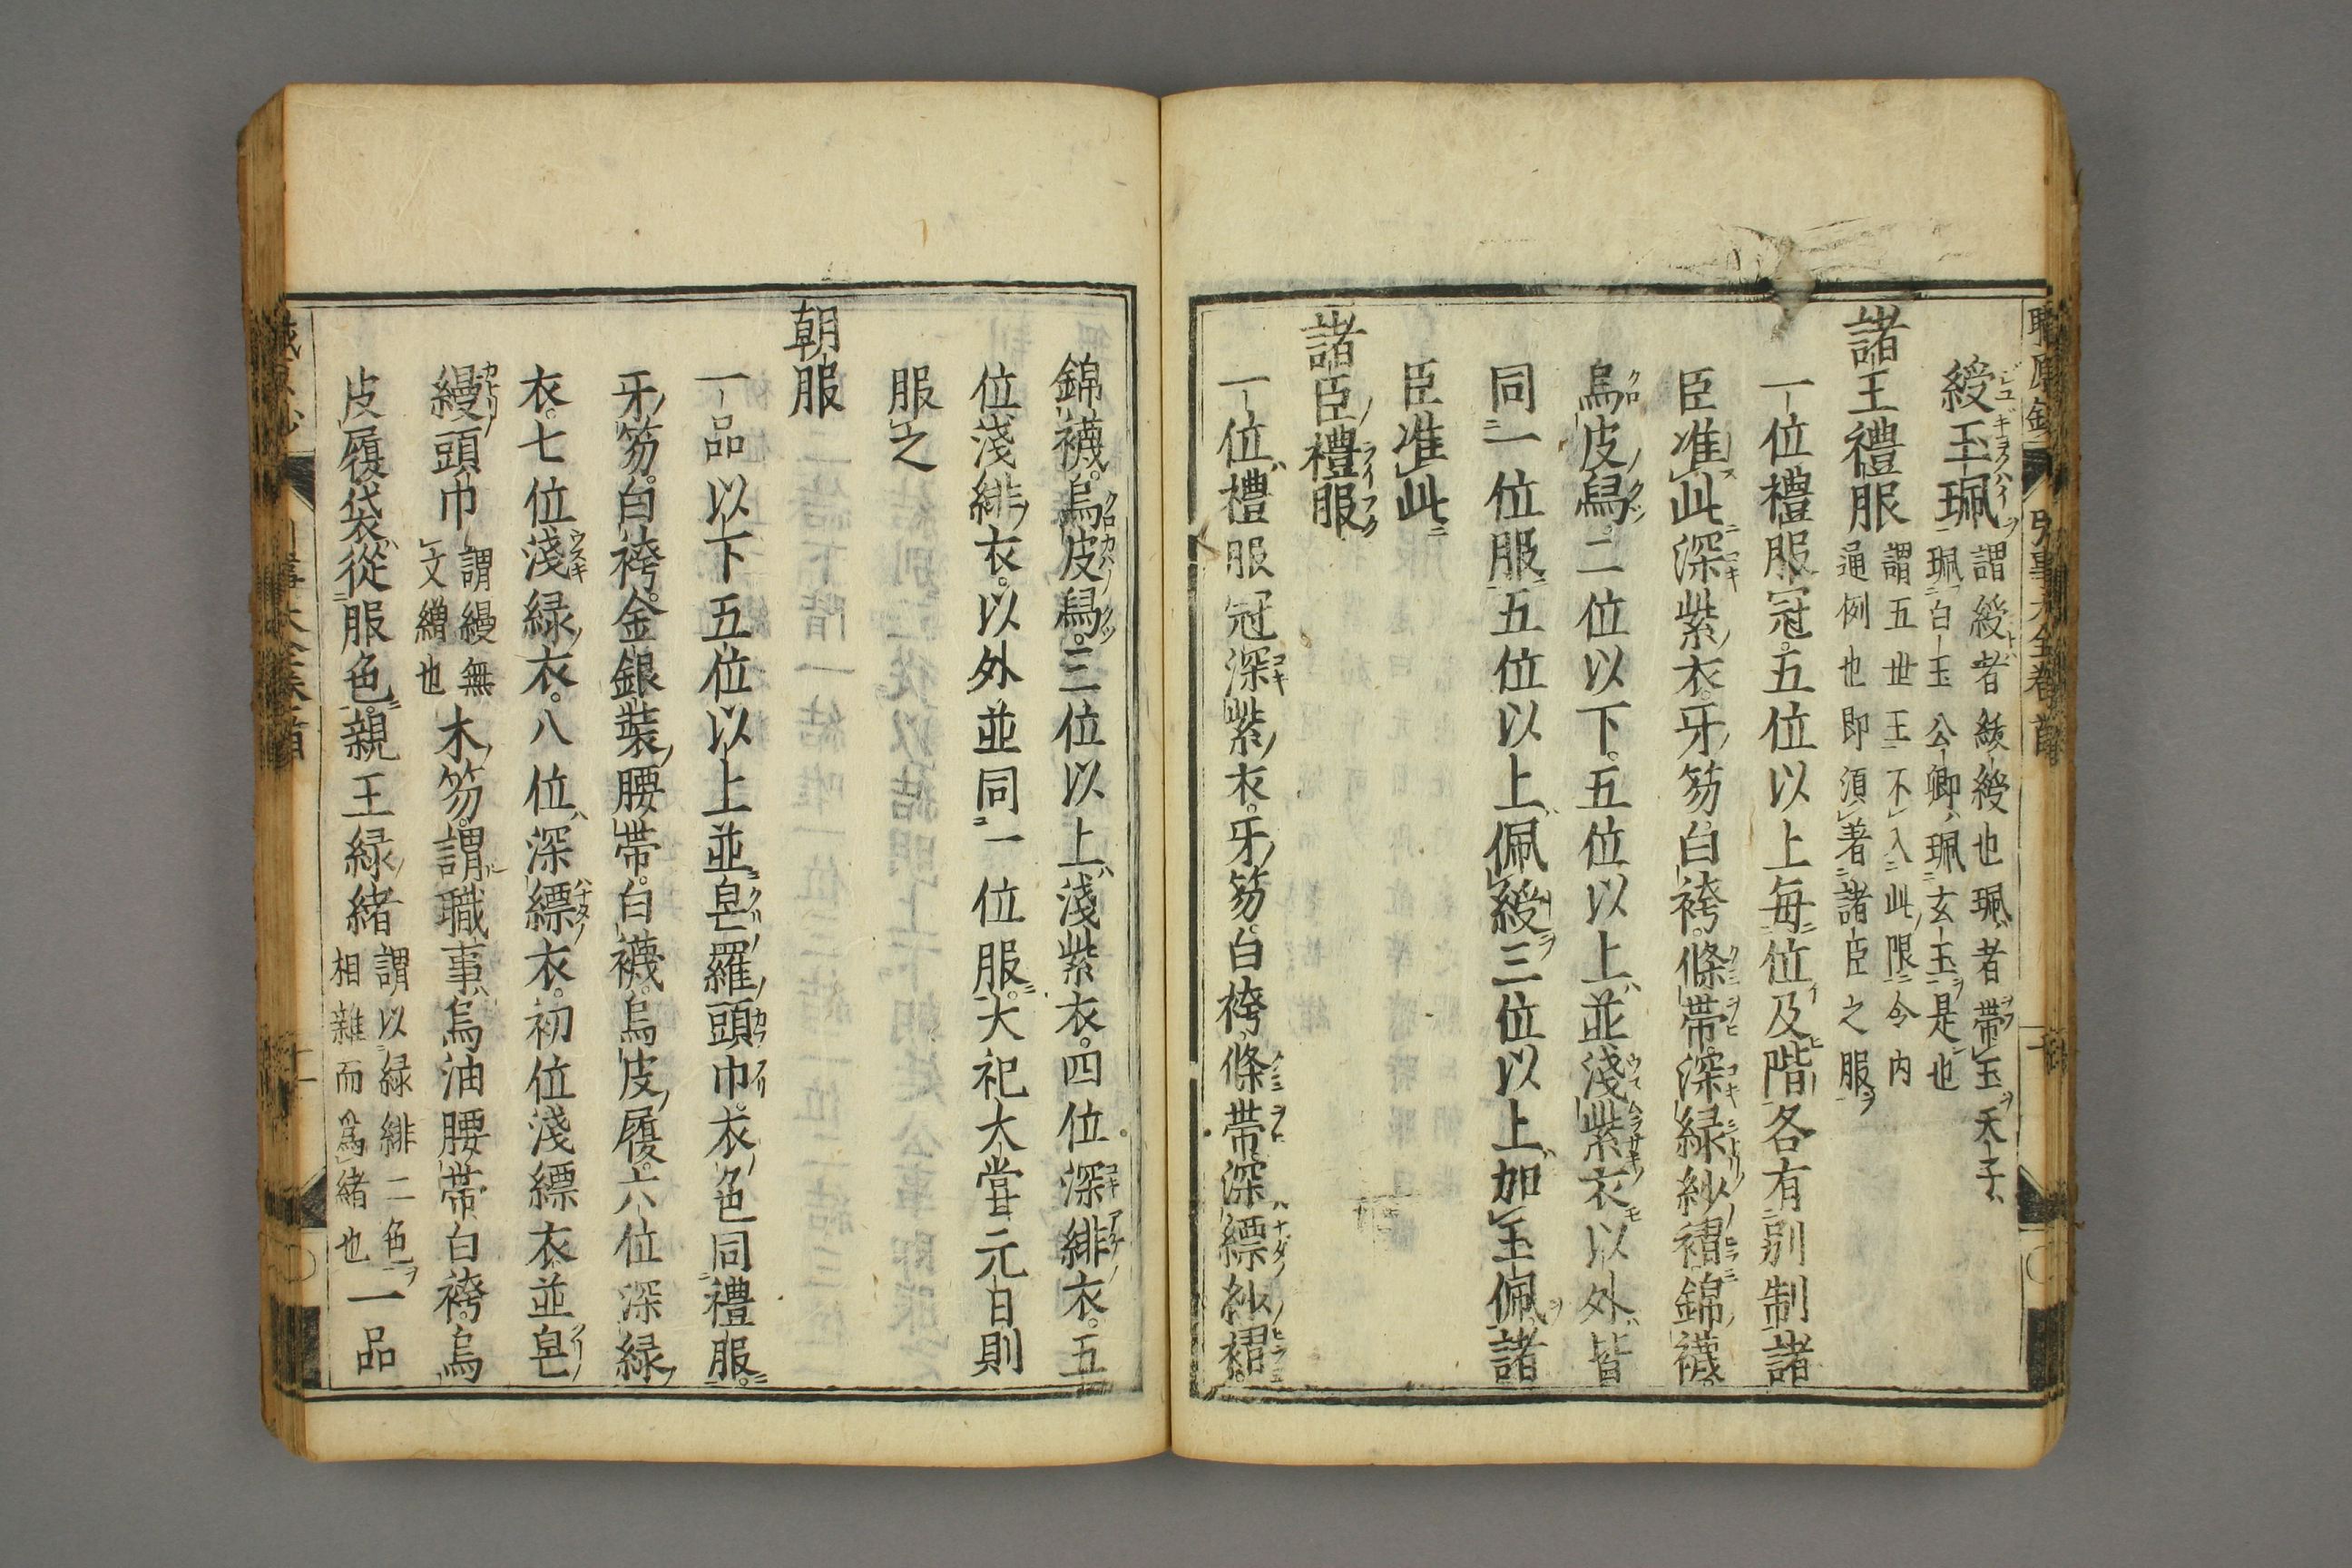 綬玉珮謂綬者綾綬也珮者帶玉天子
珮白玉公卿珮玄玉是也
諸王禮服謂五世王不入此限令內
通例也即須著諸臣之服
一位禮服冠五位以上每位及階各有別制諸
臣准此深紫衣牙笏白袴條帶深緑紗褶錦襪
烏皮舄二位以下五位以上並淺紫衣以外皆
同一位服五位以上佩綬三位以上加玉佩諸
臣准此
諸臣禮服
一位禮服冠深紫衣牙笏白袴條帶深縹紗褶
錦襪烏皮舄三位以上淺紫衣四位深緋衣五
位淺緋衣以外並同一位服大祀大甞元日則
服之
朝服
一品以下五位以上並皂羅頭巾衣色同禮服
牙笏白袴金銀裝腰帶白襪烏皮履六位深緑
衣七位淺緑衣八位深縹衣初位淺縹衣並皂
縵頭巾謂縵無文繒也木笏謂職事烏油腰帶白袴烏
皮履袋從服色親王緑緒謂以緑緋二色相雜而爲緒也一品